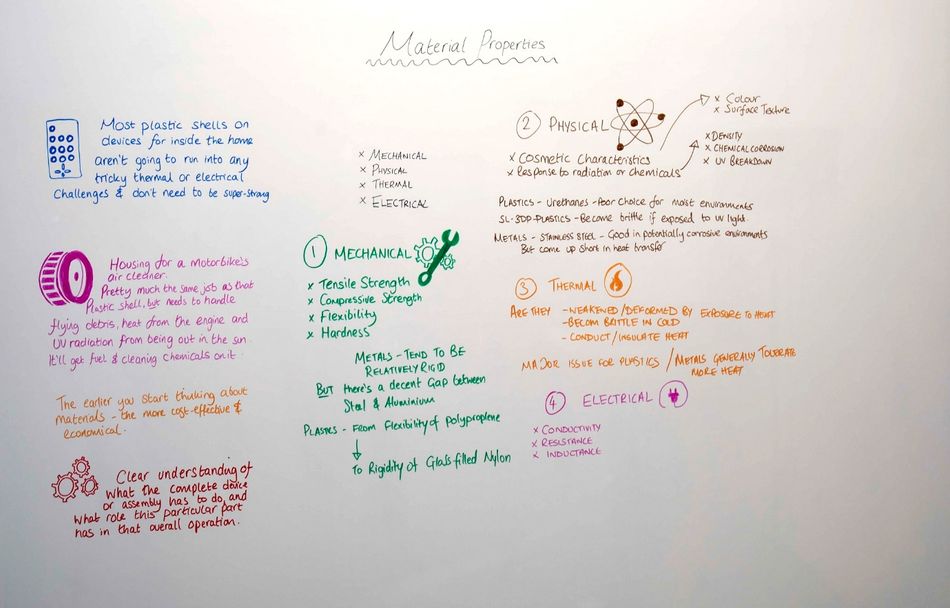 Material Properties
Most plastic shells on
devices for inside the home
aren't going to run into any
tricky thermal or electrical
challenges & don't need to be super-strong
Housing for a motorbike's
air cleaner.
Pretty much the same job as that
Plastic shell, but needs to handle
flying debris, heat from the engine and
UV radiation from being out in the sun.
It'll get fuel & cleaning chemicals on it.
The earlier you start thinking about
materials - the more cost-effective &
economical.
Clear understanding of
what the complete device
or assembly has to do, and
what role this particular part
has in that overall operation.
x MECHANICAL
x PHYSICAL
x THERMAL
x ELECTRICAL
1 MECHANICAL
x Tensile Strength
x Compressive Strength
x Flexibility
x Hardness
METALS - TEND TO BE
RELATIVELY RIGID
BUT there's a decent Gap between
Steel & Aluminium
PLASTICS - FROM Flexibility of Polyproplene
↓
To Rigidity of Glass filled Nylon
2 PHYSICAL
x Cosmetic Characteristics
x Response to radiation or chemicals
x Colour
x Surface Texture
x DENSITY
x CHEMICAL CORROSION
x UV BREAKDOWN
PLASTICS - Urethanes - Poor Choice for moist environments
SL·3DP·PLASTICS - Become brittle if exposed to UV light.
METALS - STAINLESS STEEL - Good in potentially corrosive environments
But come up short in heat transfer
3 THERMAL
ARE THEY - WEAKENED/DEFORMED BY EXPOSURE TO HEAT
- BECOM BRITTLE IN COLD
- CONDUCT/INSULATE HEAT
MAJOR ISSUE FOR PLASTICS / METALS GENERALLY TOLERATE
MORE HEAT
4 ELECTRICAL
x CONDUCTIVITY
x RESISTANCE
x INDUCTANCE